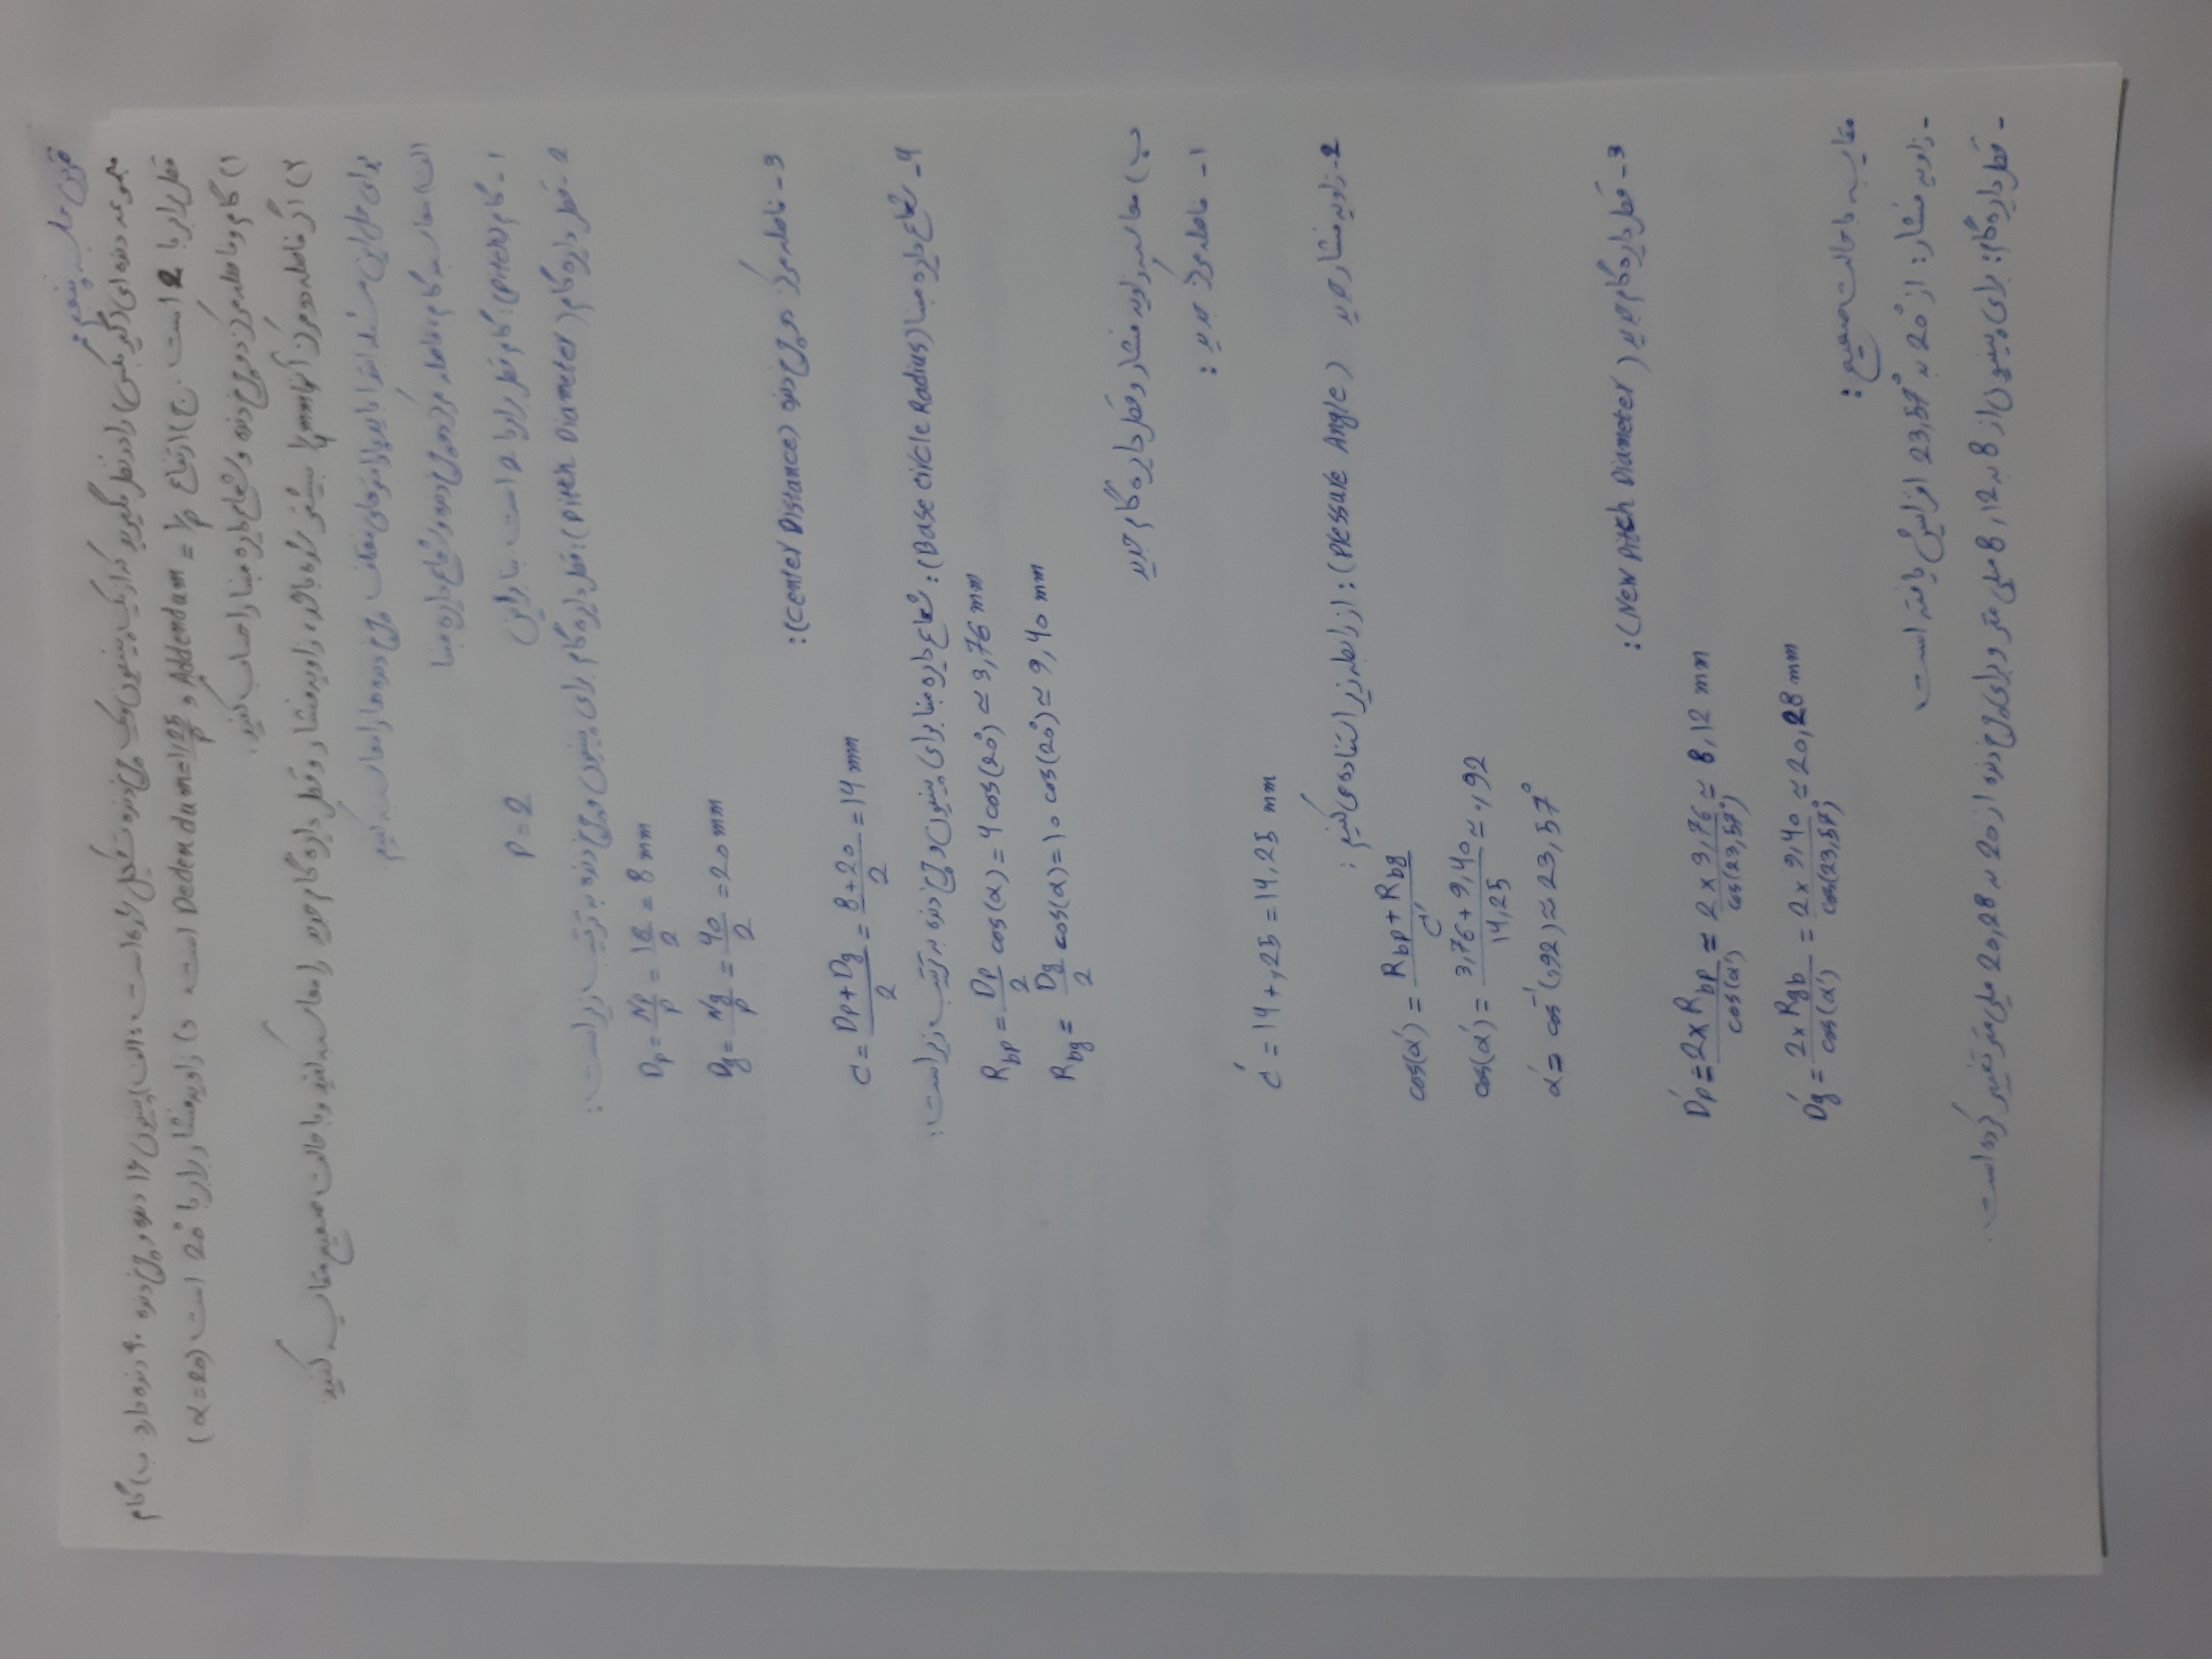 تمرین جلسه پنجم:
مجموعه دنده ای (گیربکس) را در نظر بگیرید که از یک پینیون و یک چرخ دنده تشکیل شده است: الف) پینیون ۱۶ دنده و چرخ دنده ۴۰ دنده دارد ب) گام
قطر برابر با 2 است. ج) ارتفاع Addendum = 1/P و Dedendum = 1,25/P است د) زاویه فشار برابر با 20° است (α=20)
۱) گام و فاصله مرکز دو چرخ دنده و شعاع دایره مبنا را حساب کنید.
۲) اگر فاصله دو مرکز آنها 1/4 mm بیشتر شده باشد، زاویه فشار و قطر دایره گام جدید را محاسبه کنید و با حالت صحیح مقایسه کنید.
برای حل این مسئله ابتدا باید پارامترهای مختلف چرخ دنده ها را محاسبه کنیم
الف) محاسبه گام، فاصله مرکز دو چرخ دنده و شعاع دایره مبنا
1- گام (Pitch): گام قطر برابر با 2 است بنابراین P = 2
2- قطر دایره گام (Pitch Diameter): قطر دایره گام برای پینیون و چرخ دنده به ترتیب زیر است:
Dp = Np/P = 16/2 = 8 mm
Dg = Ng/P = 40/2 = 20 mm
3- فاصله مرکز دو چرخ دنده (Center Distance):
C = (Dp + Dg)/2 = (8+20)/2 = 14 mm
4- شعاع دایره مبنا (Base Circle Radius): شعاع دایره مبنا برای پینیون و چرخ دنده به ترتیب زیر است:
Rbp = Dp/2 cos(α) = 4 cos(20°) ≃ 3,76 mm
Rbg = Dg/2 cos(α) = 10 cos(20°) ≃ 9,40 mm
ب) محاسبه زاویه فشار و قطر دایره گام جدید
1- فاصله مرکز جدید:
C' = 14 + ,25 = 14,25 mm
2- زاویه فشار جدید (Pressure Angle): از رابطه زیر استفاده می کنیم:
cos(α') = (Rbp + Rbg)/C'
cos(α') = (3,76 + 9,40)/14,25 ≃ 0,92
α' = cos⁻¹(,92) ≃ 23,57°
3- قطر دایره گام جدید (New Pitch Diameter):
D'p = 2×Rbp/cos(α') ≃ 2×3,76/cos(23,57°) ≃ 8,12 mm
D'g = 2×Rgb/cos(α') = 2×9,40/cos(23,57°) ≃ 20,28 mm
مقایسه با حالت صحیح:
- زاویه فشار: از 20° به 23,57° افزایش یافته است
- قطر دایره گام: برای پینیون از 8 به 8,12 میلی متر و برای چرخ دنده از 20 به 20,28 میلی متر تغییر کرده است.